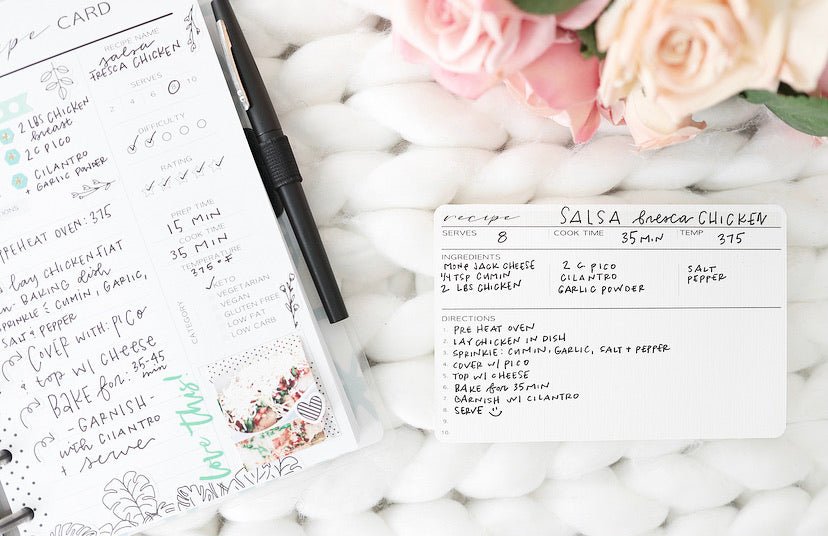 CARD
RECIPE NAME
salsa
FRESCA CHICKEN
SERVES
2 4 6 8 10
DIFFICULTY
RATING
PREP TIME
15 MIN
COOK TIME
35 MIN
TEMPERATURE
375°F
CATEGORY
KETO
VEGETARIAN
VEGAN
GLUTEN FREE
LOW FAT
LOW CARB
2 LBS CHICKEN
breast
2 C PICO
CILANTRO
+ GARLIC POWDER
PREHEAT OVEN: 375
lay CHICKEN FLAT
in BAKING dish
SPRINKLE CUMIN, GARLIC,
SALT & PEPPER
COVER WITH: PICO
+ top w/ CHEESE
BAKE for: 35-45
min
- GARNISH -
with CILANTRO
+ serve
love this!
recipe SALSA fresca CHICKEN
SERVES 8 COOK TIME 35 MIN TEMP 375
INGREDIENTS
MONT JACK CHEESE 2 C PICO SALT
1/4 TSP CUMIN CILANTRO PEPPER
2 LBS CHICKEN GARLIC POWDER
DIRECTIONS
1. PRE HEAT OVEN
2. LAY CHICKEN IN DISH
3. SPRINKLE: CUMIN, GARLIC, SALT + PEPPER
4. COVER W/ PICO
5. TOP W/ CHEESE
6. BAKE for 35 MIN
7. GARNISH W/ CILANTRO
8. SERVE
9.
10.